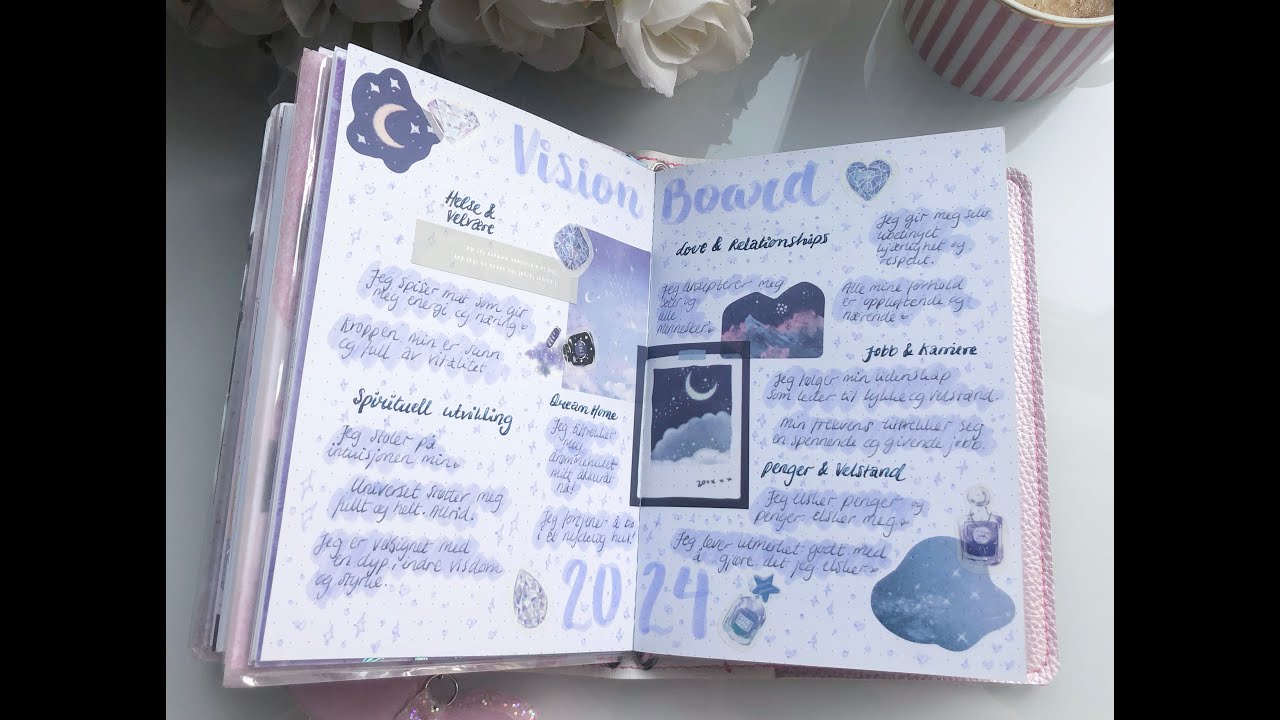 Vision Board
Helse &
velvære
Jeg spiser mat som gir
meg energi og næring
Kroppen min er sunn
og full av vitalitet
Spirituell utvikling
Jeg stoler på
intuisjonen min
Universet støtter meg
fullt og helt. Alltid.
Jeg er velsignet med
en dyp, indre visdom
og styrke.
Dream Home
Jeg tiltrekker
meg
drømmehuset
mitt akkurat
nå!
Jeg fortjener å bo
i et nydelig hus!
Love & Relationships
Jeg gir meg selv
ubetinget
kjærlighet og
respekt.
Jeg aksepterer meg
selv og
alle
mennesker
Alle mine forhold
er oppløftende og
nærende
Jobb & Karriere
Jeg følger min lidenskap
som leder til lykke og velstand.
min frekvens tiltrekker seg
en spennende og givende jobb.
penger & Velstand
Jeg elsker penger og
penger elsker meg
Jeg lever utmerket godt med
å gjøre det jeg elsker
2024